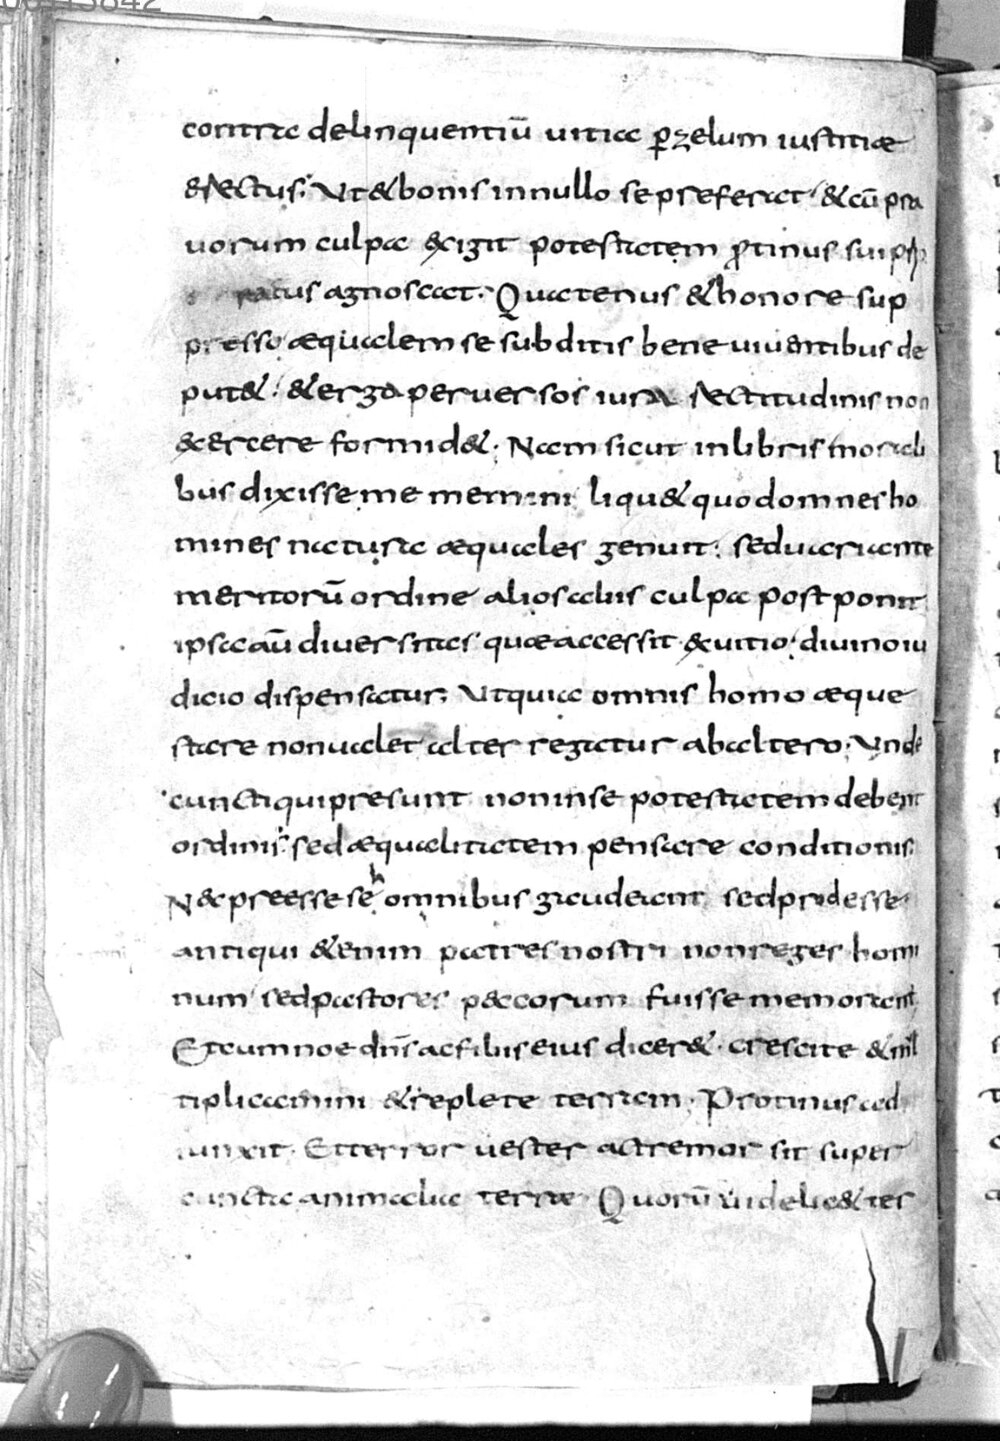 contra delinquentiū uitia ꝑzelum iustitiae
erectus; Ut & bonis innullo se preferat & cū pra
uorum culpa exigit potestatem ꝓtinus sui
ratus agnoscat. Quatenus & honore sup
presso aequalem se subditis bene uiuentibus de
put&. & erga peruersos iura rectitudinis non
exercere formid&. Nam sicut inlibris morali
bus dixisse me memini liqu& quod omnes ho
mines natura aequales genuit; sed uariante
meritorū ordine alios aliis culpa postponit
ipsa aū diuersitas quae accessit ex uitio. diuino iu
dicio dispensatur; Ut quia omnis homo aeque
stare non ualet alter regatur ab altero. Unde
cuncti qui presunt non inse potestatem debent
ordinis. sed aequalitatem pensare conditionis.
Nec preesse se hominibus gaudeant sed prodesse
antiqui &enim patres nostri non reges homi
num sed pastores pecorum fuisse memorant
Et cum noe dn̄s ac filiis eius dicer&. crescite & mul
tiplicamini & replete terram. Protinus ad
iunxit. Et terror uester ac tremor sit super
cuncta animalia terrae Quorū uidelic& ter